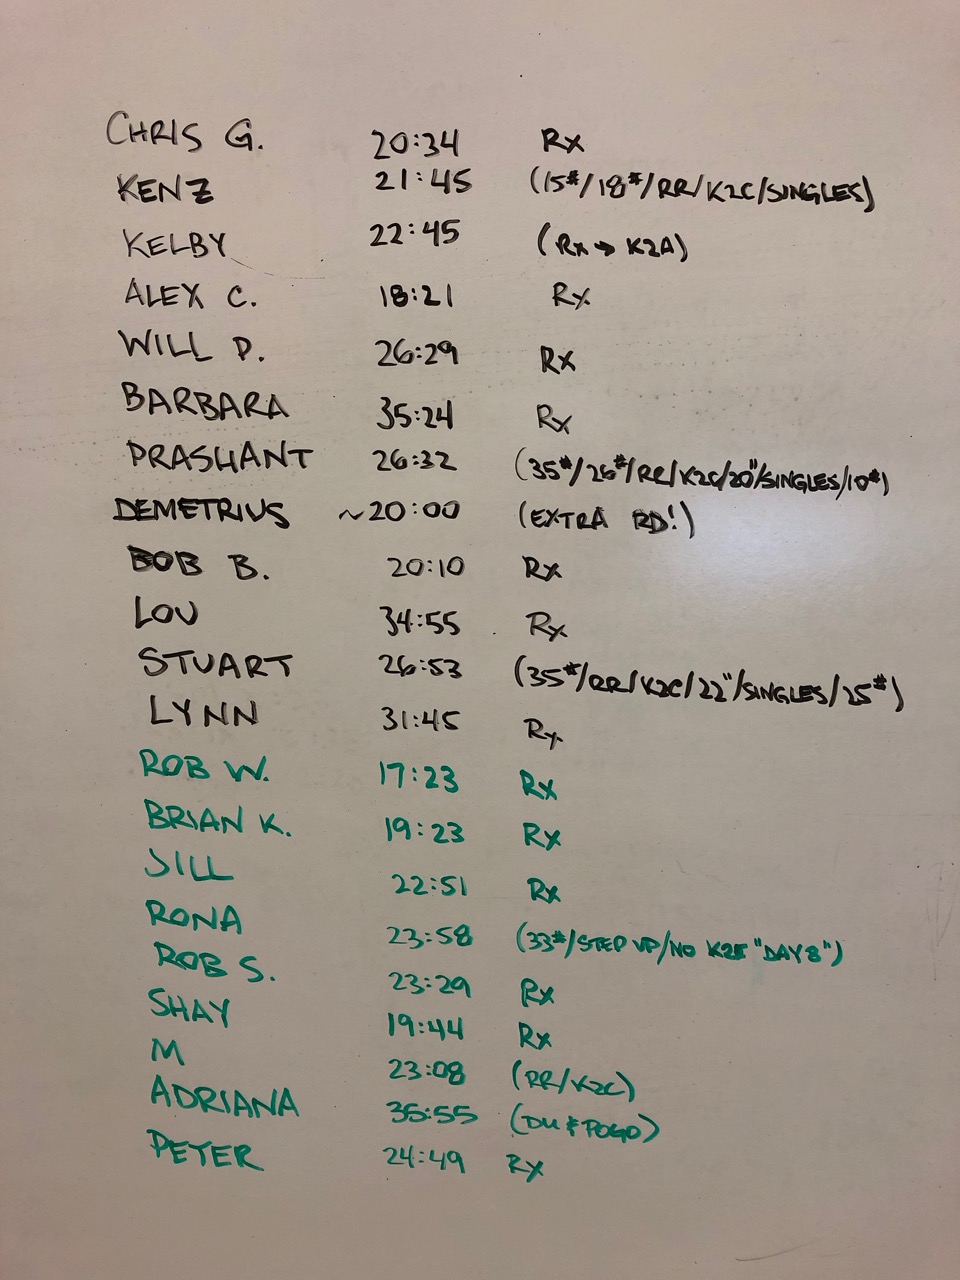 CHRIS G. 20:34 Rx
KENZ 21:45 (15#/18#/RR/K2C/SINGLES)
KELBY 22:45 (Rx → K2A)
ALEX C. 18:21 Rx
WILL P. 26:29 Rx
BARBARA 35:24 Rx
PRASHANT 26:32 (35#/26#/RR/K2C/20"/SINGLES/10#)
DEMETRIUS ~20:00 (EXTRA RD!)
BOB B. 20:10 Rx
LOU 34:55 Rx
STUART 26:53 (35#/RR/K2C/22"/SINGLES/25#)
LYNN 31:45 Rx
ROB W. 17:23 Rx
BRIAN K. 19:23 Rx
JILL 22:51 Rx
RONA 23:58 (33#/STEP UP/NO K2E "DAY 8")
ROB S. 23:29 Rx
SHAY 19:44 Rx
M 23:08 (RR/K2C)
ADRIANA 35:55 (DU & POGO)
PETER 24:49 Rx